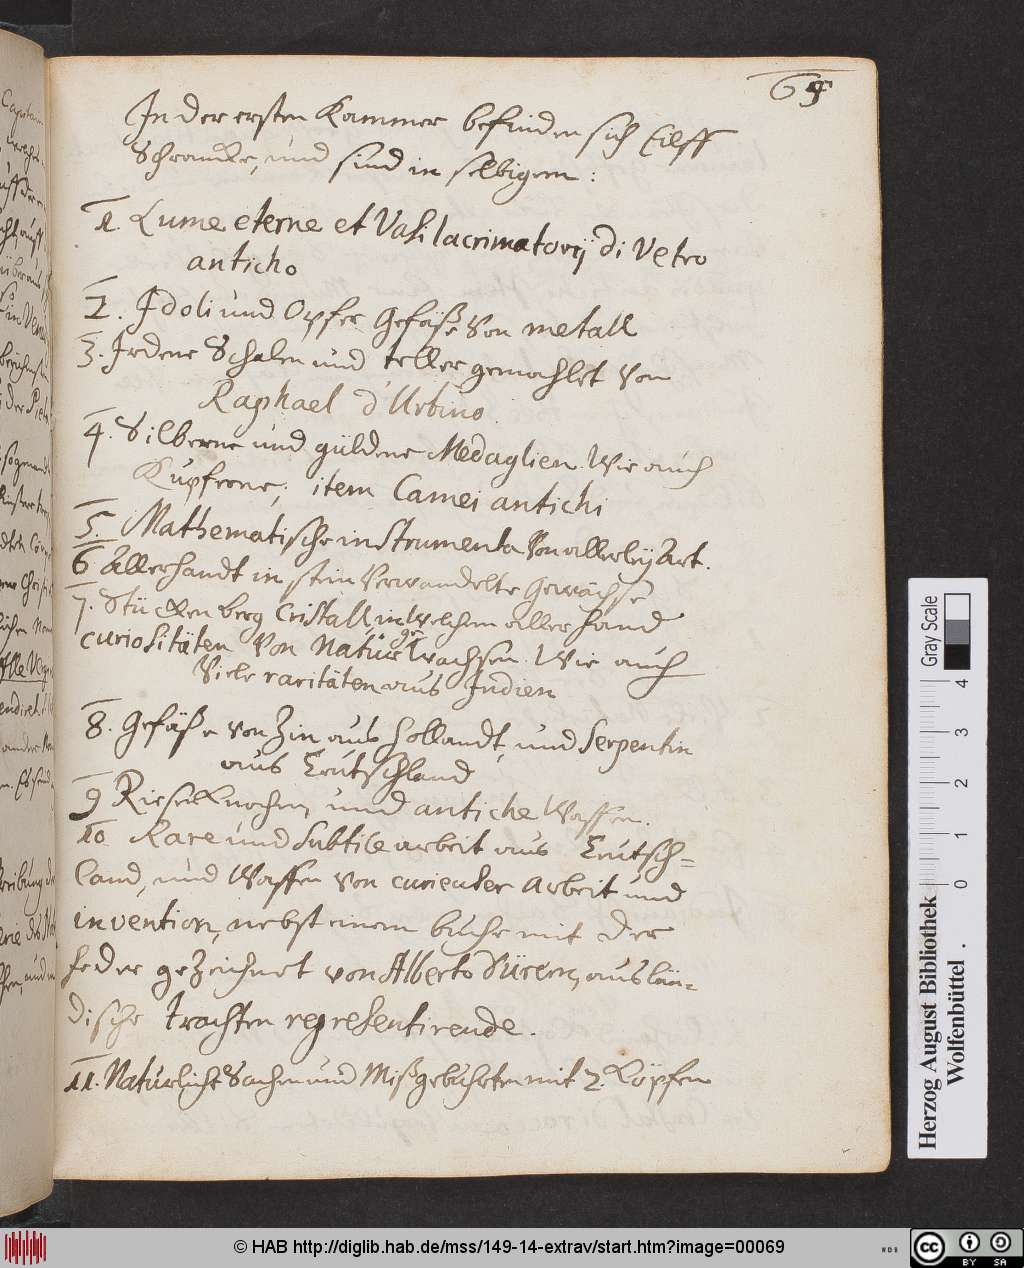 65
In der ersten Kammer befinden sich Eilff
Schrancke, und sind in selbigem:
1. Lume eterne et Vasi lacrimatorÿ di Vetro
anticho
2. Idoli und Opfer Gefäße von metall
3. Irdene Schalen und teller gemahlet von
Raphael d'Urbino
4. Silberne und güldene Medaglien. Wie auch
Kupferne, item Camei antichi
5. Mathematische instrumenta Von allerleÿ Art.
6 Allerhandt in stein Verwandelte Gewächse
7. Stücken berg Cristall in Welchem aller hand
curiositäten Von Natur gewachsen. Wie auch
Viele raritäten aus Indien
8. Gefäße von Zin aus Hollandt, und Serpentin
aus Teutschland
9 Riesenknochen, und antiche Waffen.
10. Rare und subtile arbeit aus Teutsch=
land, und Waffen von curieuser Arbeit und
invention, nebst einem buche mit der
feder geZeichnet von Alberto Dürern, auslän=
dische trachten representirende.
11. Naturliche Sachen und Mißgebuhrten mit 2. Köpfen
Gray Scale
4
3
2
1
0
Herzog August Bibliothek
Wolfenbüttel
© HAB http://diglib.hab.de/mss/149-14-extrav/start.htm?image=00069
cc BY SA